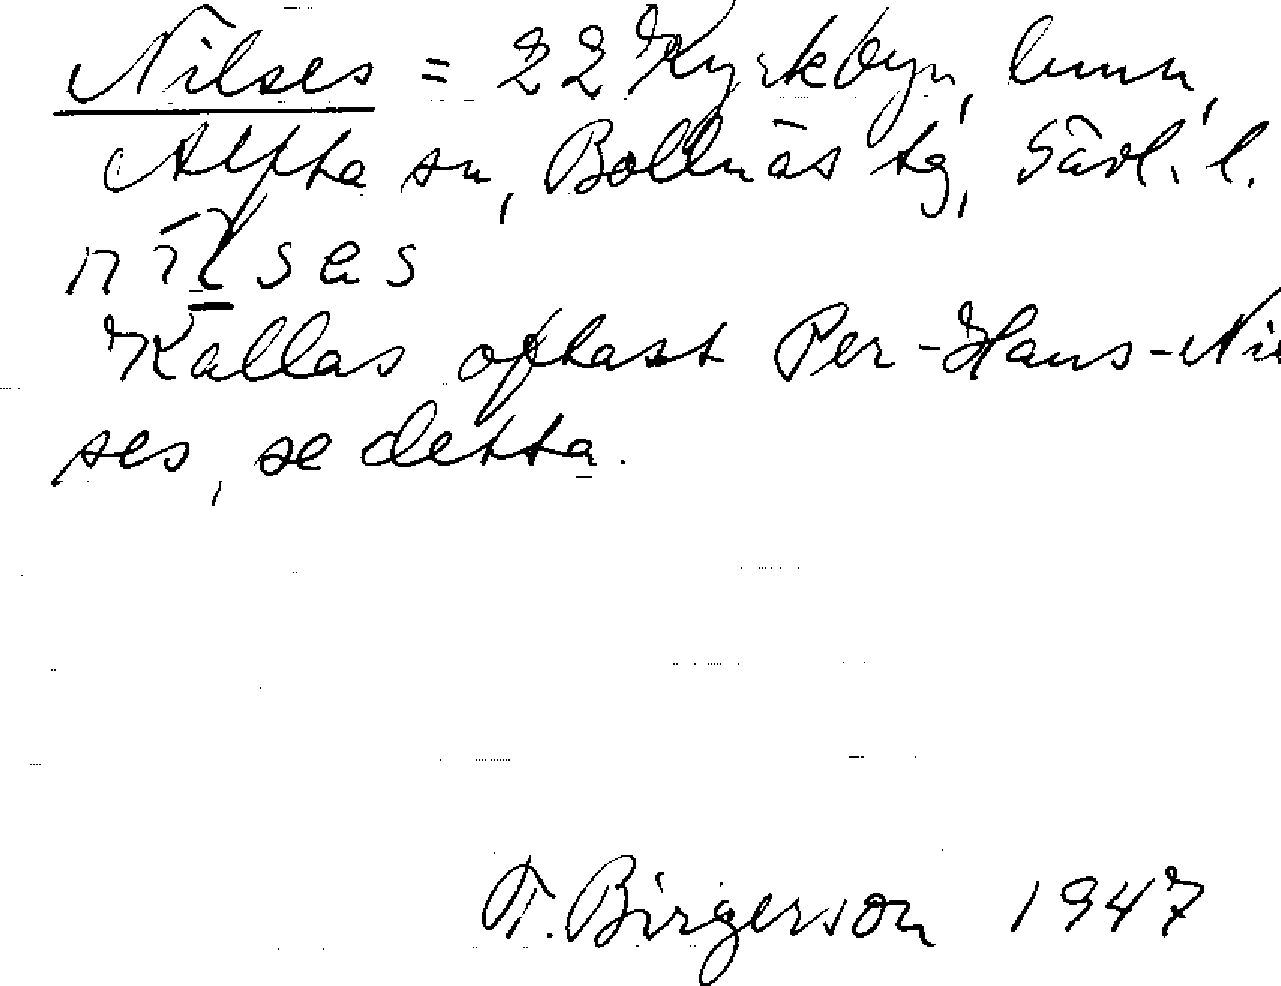 Nilses = 22 Kyrkbyn, hmn,
Alfta sn, Bollnäs tg, Gävl. l.
nīlses
Kallas oftast Per-Hans-Nil
ses, se detta.
T. Birgerson 1947